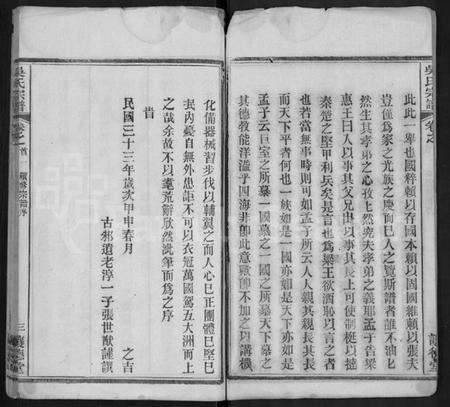 吳氏宗譜
卷之
此此一舉也國粹賴以存國本賴以固國維賴以張夫
豈僅爲家之光族之慶而已哉吾人之覽斯譜者誰不油
然生其孝弟之心攷上然興夫孝弟之義耶孟子告梁
惠王曰人以事其父兄出以事其長上可使制梃以撻
秦楚之堅甲利兵矣是言也爲梁王欲洒恥以言之者
也若當無事時則可如孟子所云人人親其親長其長
而天下平者何也一族如是一國亦如是天下亦如是
孟子云巨室之所慕一國慕之一國之所慕天下慕之
其德教能洋溢乎四海非卽此意歟卽不加之以講機
化備器械習步伐以輔翼之而人心已正團體已堅已
民內憂自無外患詎不可以衣冠萬國駕五大洲而上
之哉余故不以耄荒辭欣然泚筆而爲之序
旹
民國三十三年歲次甲申春月 之吉
古邾遺老淳一子張世猷謹譔
吳氏宗譜
卷之首
續修宗譜序
三
讓德堂